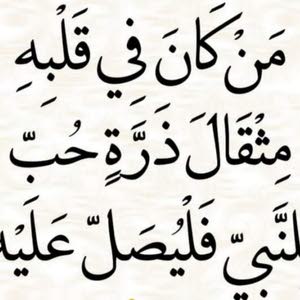 مَنْ كَانَ فِي قَلْبِهِ
مِثْقَالَ ذَرَّةٍ حُبّ
لِلنَّبِيّ فَلْيُصَلّ عَلَيْهِ